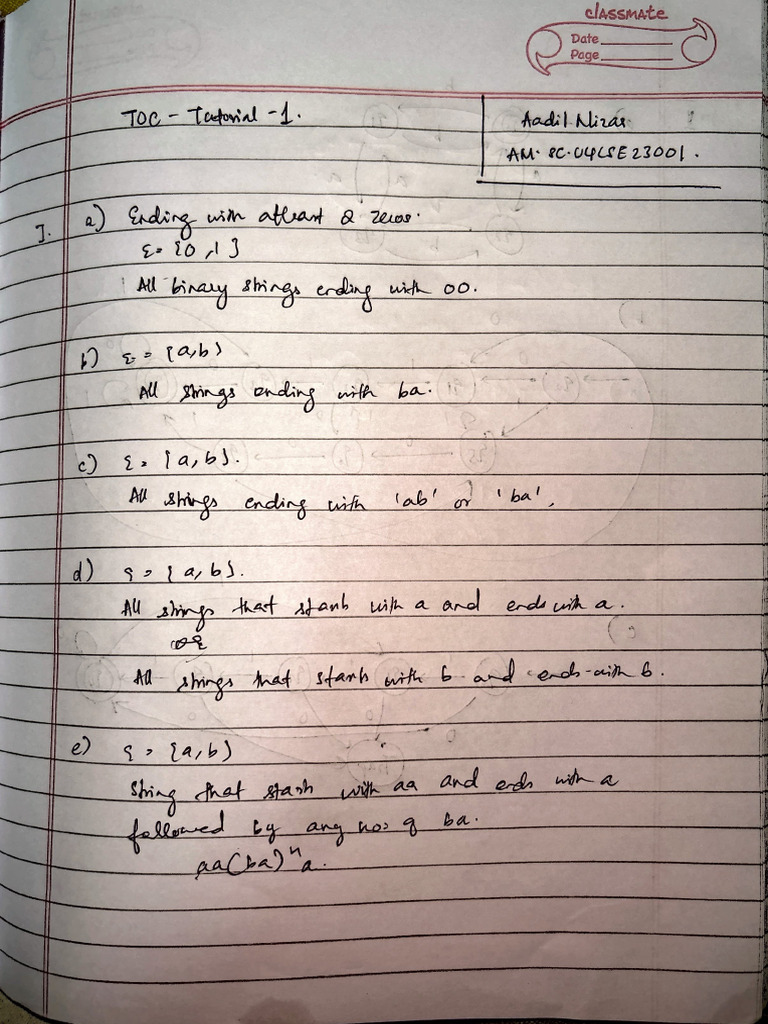 classmate
Date
Page
TOC - Tutorial -1.
Aadil Nizar
AM.SC.U4CSE23001.
1. a) Ending with atleast 2 zeros.
Σ = {0,1}
All binary strings ending with 00.
b) Σ = {a,b}
All strings ending with ba.
c) Σ = {a,b}.
All strings ending with 'ab' or 'ba'.
d) Σ = {a,b}.
All strings that starts with a and ends with a.
OR
All strings that starts with b and ends with b.
e) Σ = {a,b}
String that starts with aa and ends with a
followed by any no: of ba.
aa(ba)ⁿa.